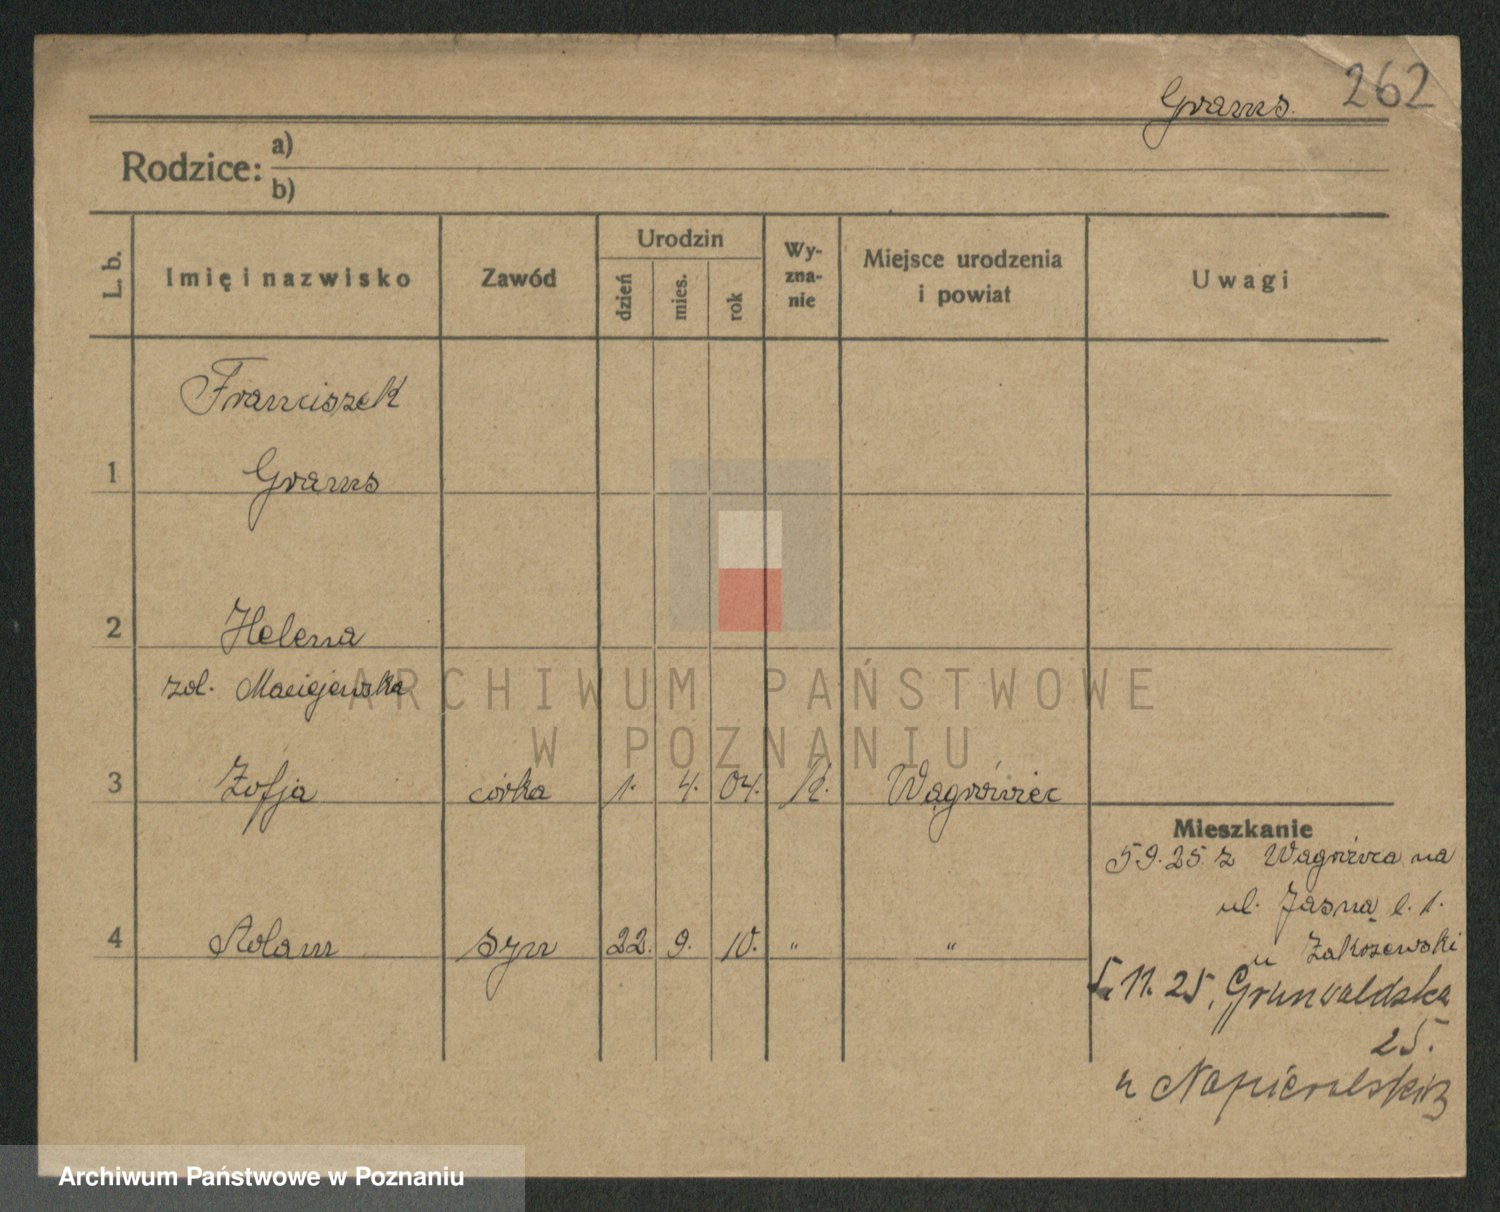 262
Grams.
Rodzice: a)
b)
L. b.
Imię i nazwisko
Zawód
Urodzin
dzień
mies.
rok
Wy-
zna-
nie
Miejsce urodzenia
i powiat
Uwagi
Franciszek
1 Grams
2 Helena
zol. Maciejewska
3 Zofja córka 1. 4. 04. k. Wągrówiec
Mieszkanie
5 9. 25. z Wągrówca na
ul. Jasną l. 1.
u Zakrzewski
4 Roland syn 22. 9. 10. " "
5. 11. 25, Grunwaldzka
25.
u
ARCHIWUM PAŃSTWOWE
W POZNANIU
Archiwum Państwowe w Poznaniu